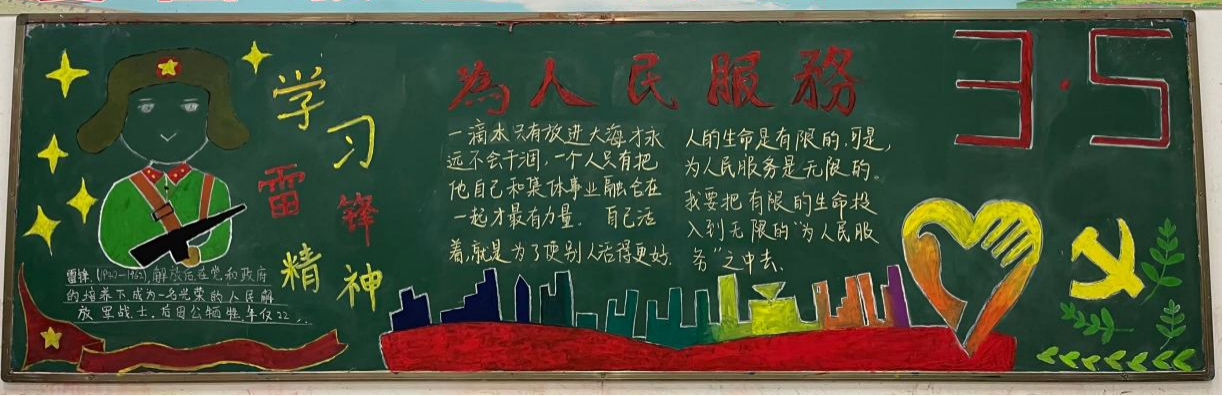 学习
雷锋
精神
雷锋.(1940-1962),解放后在党和政府
的培养下成为一名光荣的人民解
放军战士.后因公牺牲,年仅22,..
為人民服務
一滴水只有放进大海才永
远不会干涸.一个人只有把
他自己和集体事业融合在
一起才最有力量. 自己活
着,就是为了使别人活得更好.
人的生命是有限的.可是,
为人民服务是无限的。
我要把有限的生命投
入到无限的“为人民服
务”之中去.
3·5